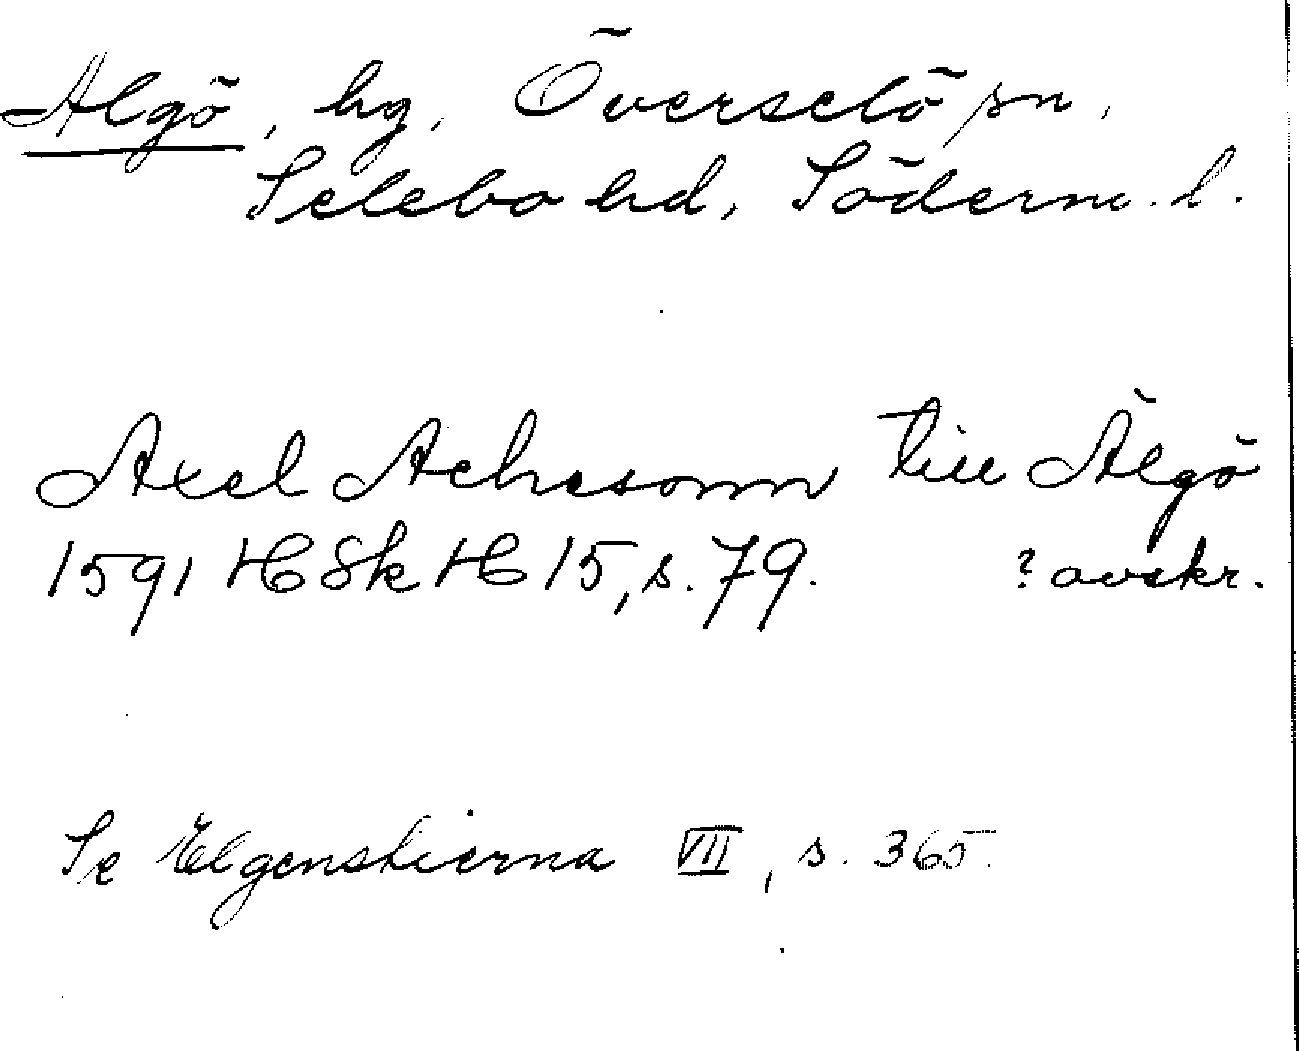 Algö, hg, Överselö sn,
Selebo hd, Söderm. l.
Axel Achesonn till Älgö
1591 HSkH 15, s. 79. ? avskr.
Se Elgenstierna VII, s. 365.